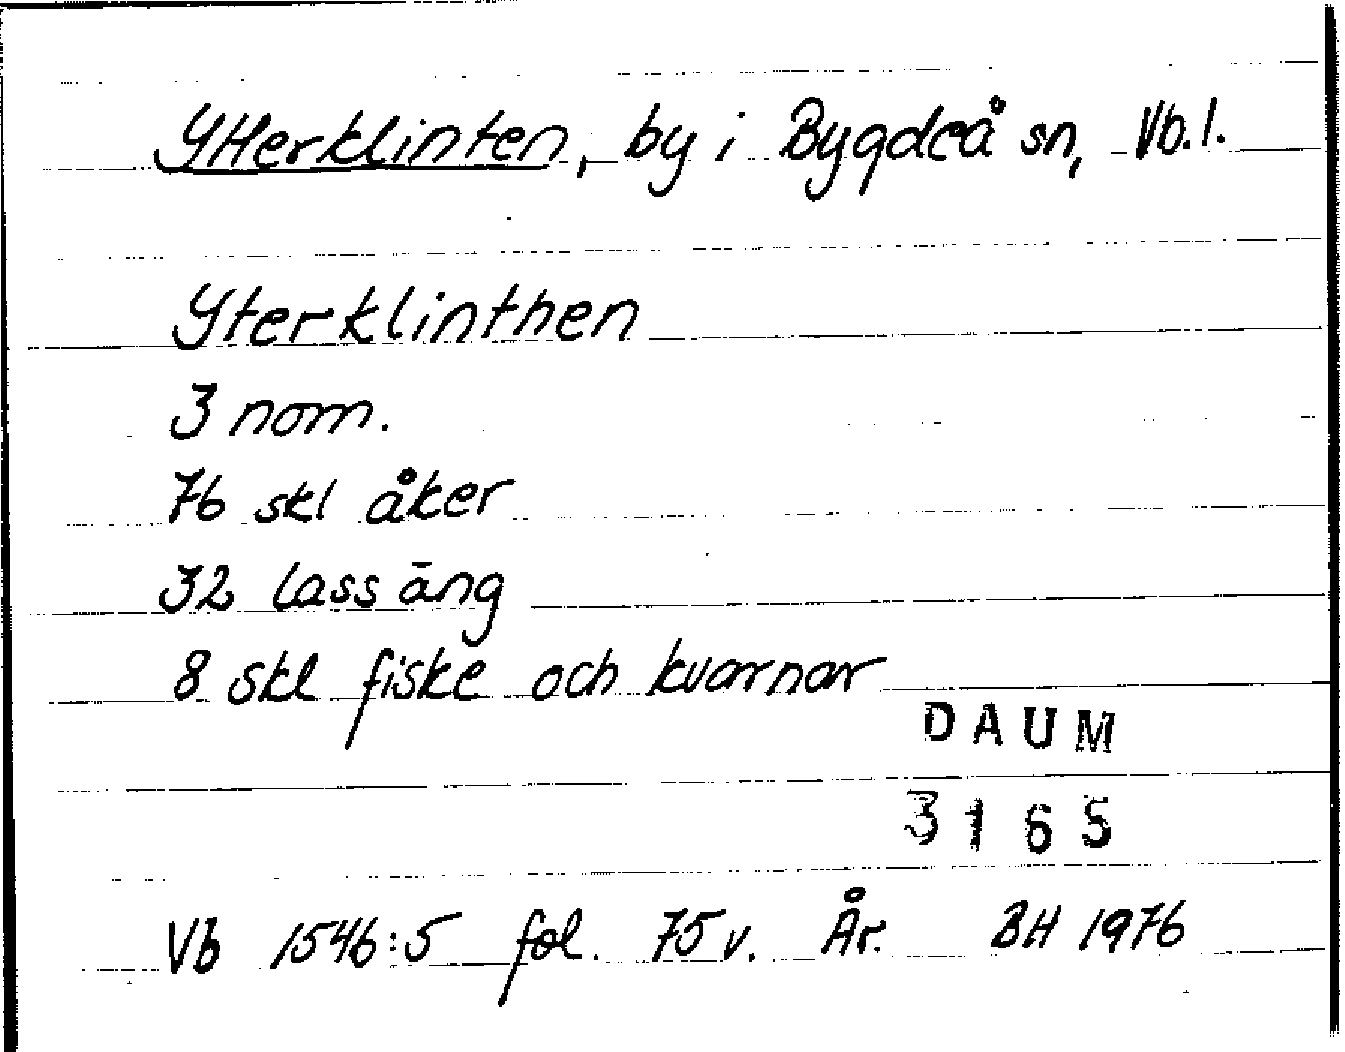 Ytterklinten, by i Bygdeå sn, Vb. l.
Yterklinthen
3 nom.
76 skl åker
32 lass äng
8 skl fiske och kvarnar
DAUM
3165
Vb 1546:5 fol. 75 v. År. BH 1976